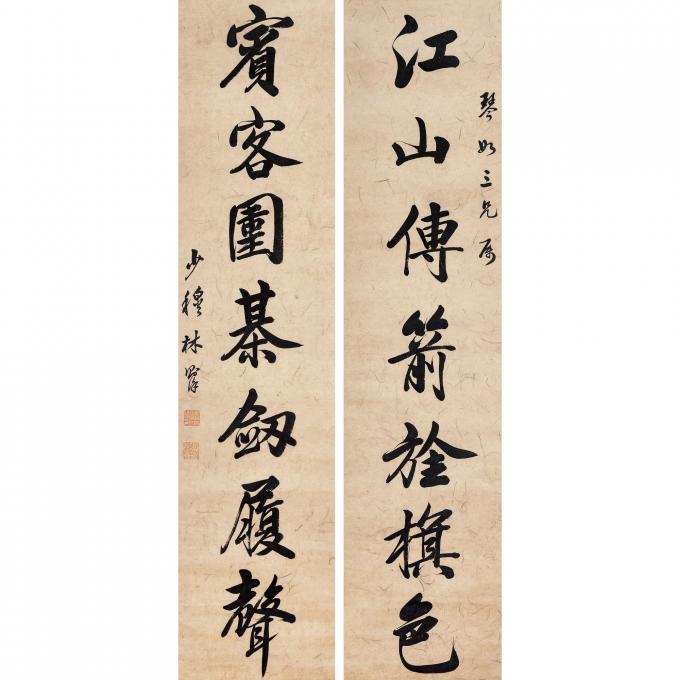 琴如三兄属
江山傳箭旌旗色
賓客圍棊劒履聲
少穆林則徐